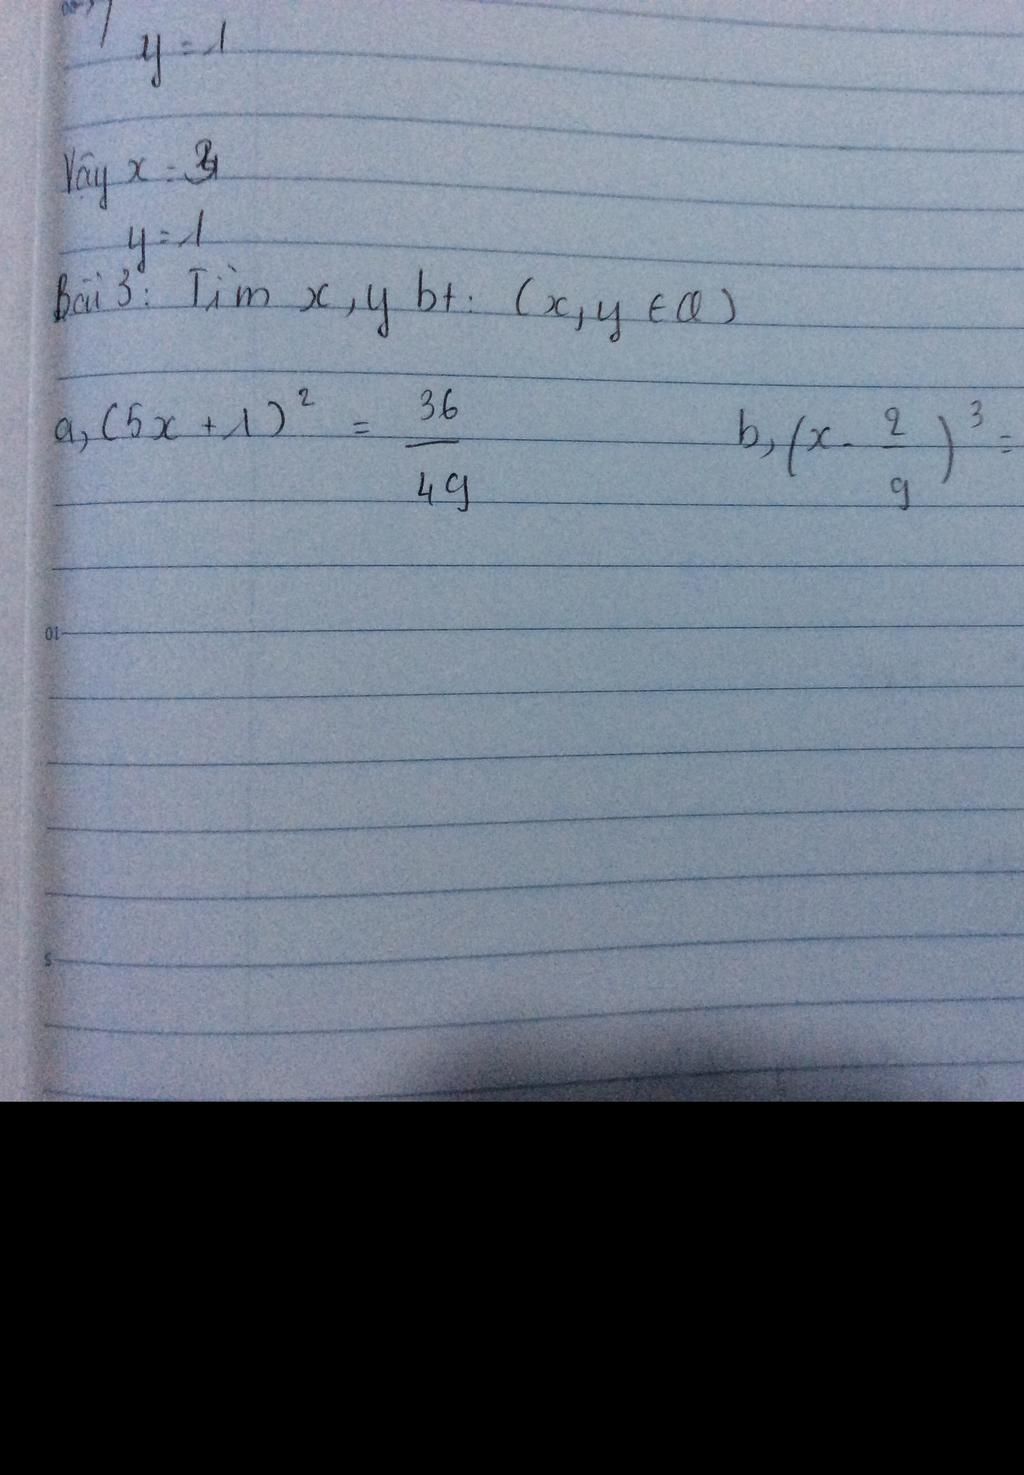 y = 1
Vậy x = 3
y = 1
Bài 3: Tìm x, y bt: (x, y ∈ Q)
a, (5x + 1)² = 36/49 b, (x - 2/9)³ =
10
5